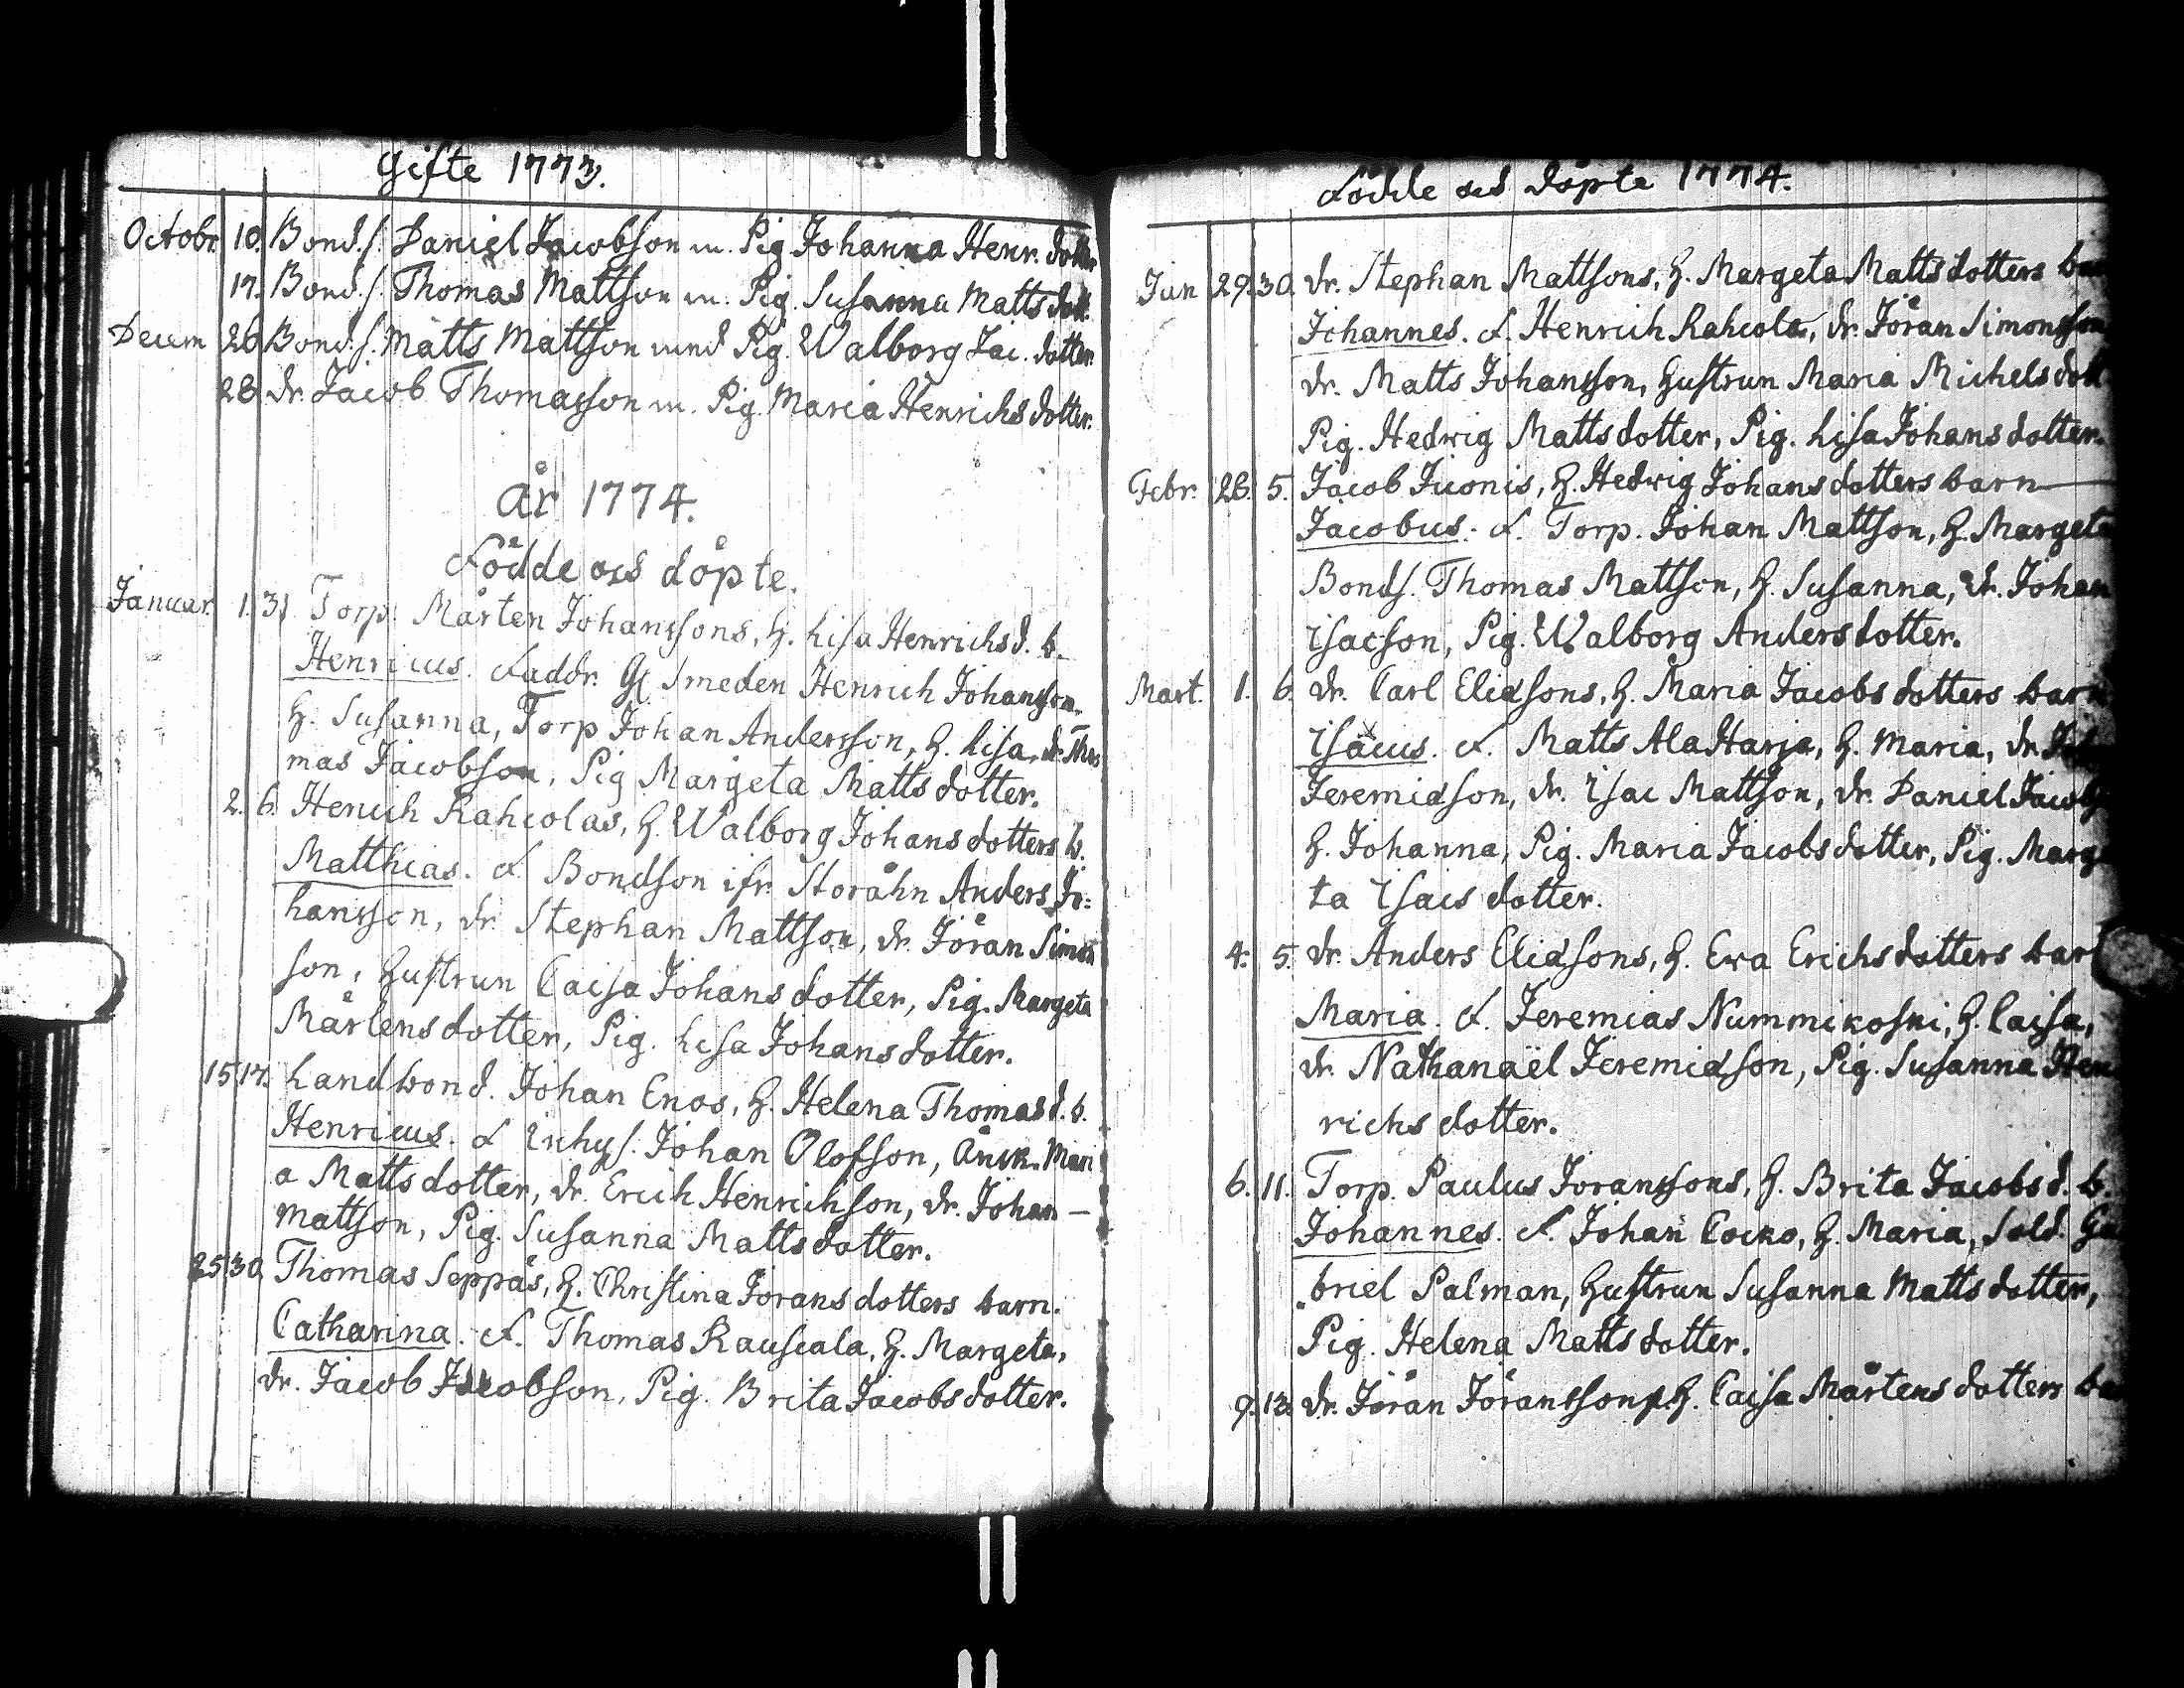 Gifte 1773.
Octobr. 10. Bond.s. Daniel Jacobsson m. Pig. Johanna Henr. dotter
17. Bond.s. Thomas Mattson m. Pig. Susanna Matts dott.
Decem 26 Bond.s. Matts Mattson med Pig. Walborg Jac. dotter.
28 dr Jacob Thomasson m. Pig. Maria Henrichs dotter.
År 1774.
Födde och döpte.
Januar. 1. 3. Torp. Mårten Johanssons, H. Lisa Henrichs d. b.
Henricus. Faddr. Gl Smeden Henrich Johansson.
H. Susanna, Torp Johan Andersson, H. Lisa, dr. Tho
mas Jacobson, Pig Margeta Matts dotter.
2. 6. Henrich Rahcolas, H. Walborg Johans dotters b.
Matthias. F. Bondson ifr. Storåhn Anders Jo=
hansson, dr. Stephan Mattson, dr. Jöran Simon
son, Hustrun Caisa Johans dotter, Pig. Margeta
Mårtens dotter, Pig. Lisa Johans dotter.
15 17. Landbond. Johan Enos, H. Helena Thomas d. b.
Henricus. F Inhys. Johan Olofson, Änk. Mari
a Matts dotter, dr. Erich Henrichson, dr. Johan —
Mattson, Pig. Susanna Matts dotter.
25 30 Thomas Seppäs, H. Christina Jörans dotters barn.
Catharina. F. Thomas Rauscala, H. Margeta,
dr. Jacob Jacobson, Pig. Brita Jacobs dotter.
Födde och döpte 1774.
Jan 29. 30. dr. Stephan Mattsons, H. Margeta Matts dotters barn
Johannes. F. Henrich Rahcola, dr. Jöran Simonsson
dr. Matts Johansson, Hustrun Maria Michels dott
Pig. Hedwig Matts dotter, Pig. Lisa Johans dotter.
Febr. 28. 5. Jacob Juonis, H. Hedwig Johans dotters barn —
Jacobus. F. Torp. Johan Mattson, H. Margeta
Bonds. Thomas Mattson, H. Susanna, dr. Johan
Isacson, Pig. Walborg Anders dotter.
Mart. 1. 6. dr. Carl Eliæsons, H. Maria Jacobs dotters barn
Isacus. F. Matts AlaHarja, H. Maria, dr.
Jeremiæson, dr. Isac Mattson, dr. Daniel Jacobs
H. Johanna, Pig. Maria Jacobs dotter, Pig. Marge
ta Isacs dotter.
4. 5. dr. Anders Eliæsons, H. Ewa Erichs dotters bar
Maria. F. Jeremias Nummikoski, H. Caisa,
dr. Nathanaël Jeremiæson, Pig. Susanna Hen
richs dotter.
6. 11. Torp. Paulus Joranssons, H. Brita Jacobs d. b.
Johannes. F. Johan Cocko, H. Maria, Sold. Ga
briel Palman, Hustrun Susanna Matts dotter,
Pig. Helena Matts dotter.
9. 13. dr. Jöran Jöranssons, H. Caisa Mårtens dotters ba